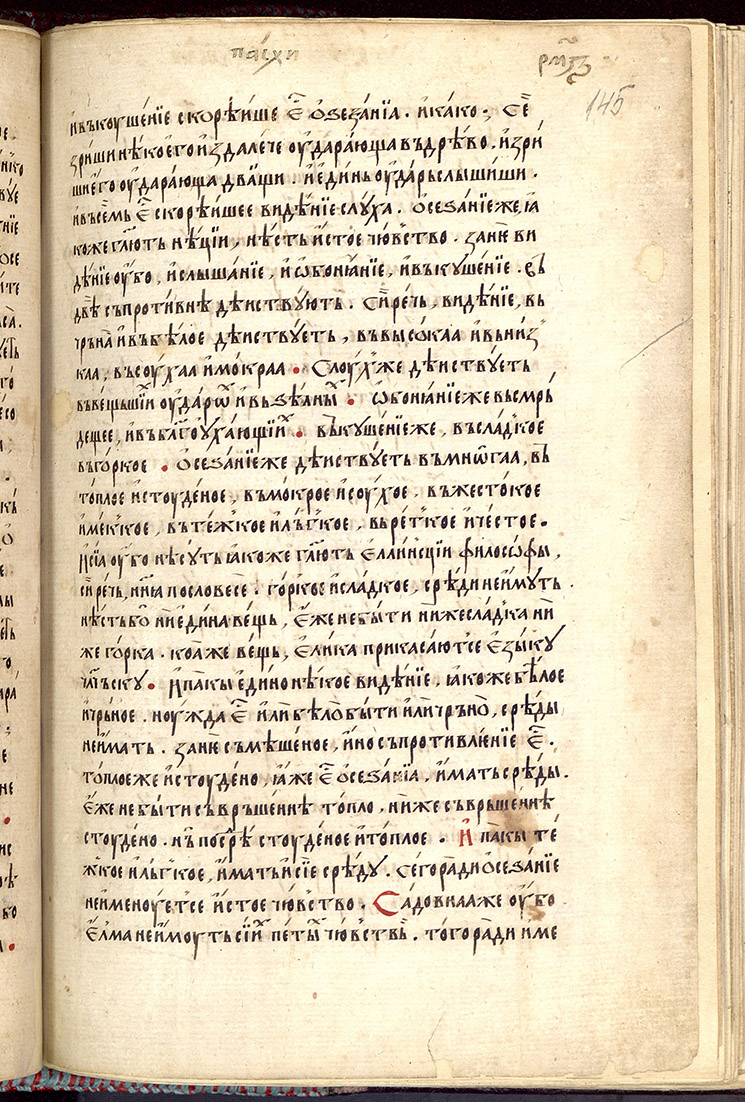 пасхи
рмз
145
и въкоушенїе скорѣише е҃ осезанїа . и како ; Се҃
зриши нѣкоего издалече оударающа въ дрѣво . и зри
ши его оударающа дващи . и единь оударь слышиши .
и въ семь е҃ скорѣишее видѣнїе слуха . осезанїе же, ꙗ
коже гл҃ють нѣцїи , нѣсть истое чювство . зан҃е ви
дѣнїе оубо , и слышанїе , и ѡбонꙗнїе , и въкушенїе . въ
двѣ съпротивнѣ дѣиствують . Си҃ речь , видѣнїе , вь
чрьнаа и въ бѣлое дѣиствуеть , въ высокаа и вь низ
каа , въ соухаа и мокраа . Слоух же дѣиствуеть
въ вещьшїи оударѡ и вь зѣлны . ѡбонꙗнїе же вь смрь
дещее , и въ бл҃гоухающїи . въкушенїе же , въ сладкое
въ горкое . осезанїе же дѣиствуеть въ мнѡгаа , въ
топлое и стоуденое , въ мокрое и соухое , въ жестокое
и меккое , въ тежкое и льгкое , вь реткое и честое .
и сїа оубо нѣ суть ꙗкоже гл҃ють еллинсцїи философы ,
си҃ речь , инꙗа по словесе . горкое и сладкое , среди не имуть .
нѣсть бо ни едина вещь , еже не быти ниже сладка ни
же горка . коа же вещь , елика прикасаютсе езыку
чл҃чьску . и пакы едино нѣкое видѣнїе , ꙗкоже бѣлое
и чрьное . ноужда е҃ или бѣло быти или чрьно , среды
не имать . зан҃е съмѣшеное , ино съпротивлкнїе е҃ .
топлое же и стоудено , ꙗже е҃ осезанїа , имать среды .
еже не быти съврьшеннѣ топло , ниже съврьшеннѣ
стоудено . нь посрѣ стоуденое и топлое . И пакы те
жкое и льгкое , имать и сїе среду . Сего ради осезанїе
не именоуетсе истое чювство . Садовнаа же оубо
елма не имоуть сїи петы чювствь . того ради име